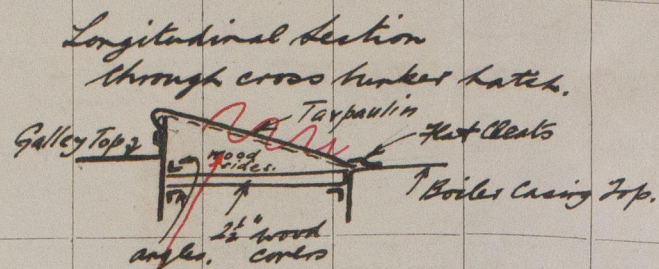 Longitudinal Section
through cross bunker hatch.
Tarpaulin
Galley Top
Flat Cleats
wood
sides.
Boiler Casing Top.
angles.
2½" wood
covers